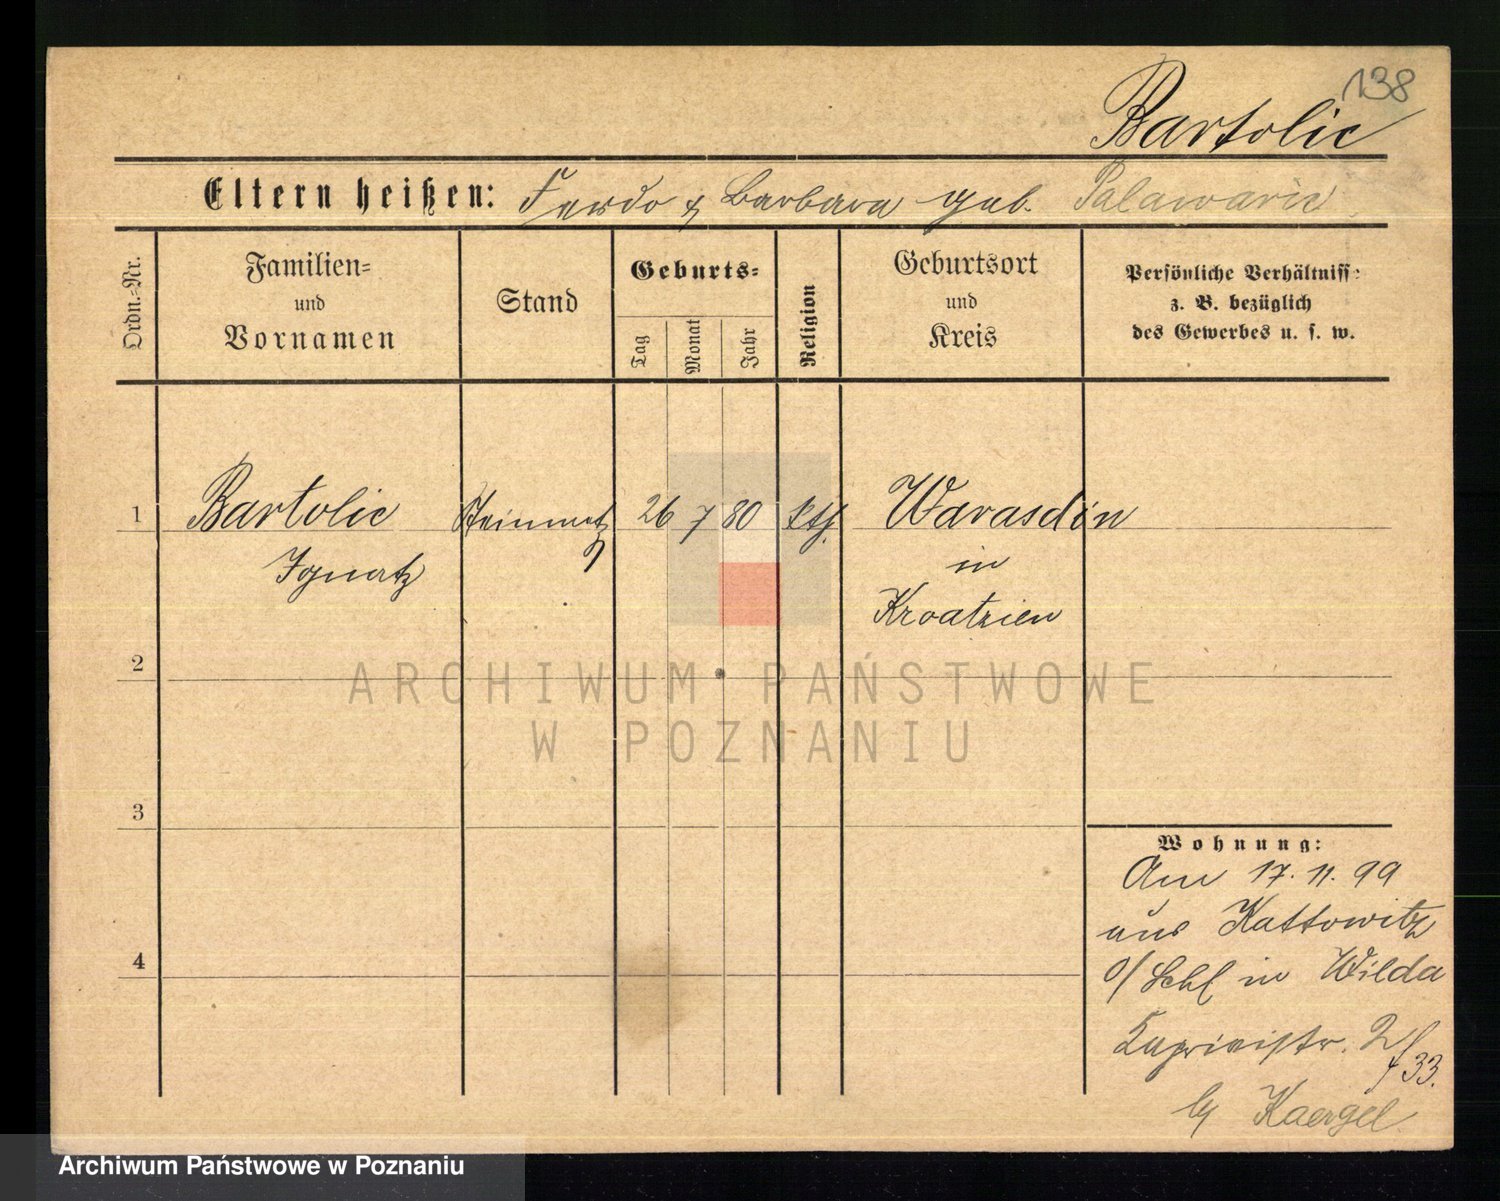 138
Bartolic
Eltern heißen: Ferdo & Barbara geb. Palawaric
Ordn.-Nr.
Familien-
und
Vornamen
Stand
Geburts-
Tag
Monat
Jahr
Religion
Geburtsort
und
Kreis
Persönliche Verhältniss:
z. B. bezüglich
des Gewerbes u. s. w.
1 Bartolic Steinmetz 26 7 80 kth. Warasdin
Ignatz in
Kroatzien
2
ARCHIWUM PAŃSTWOWE
W POZNANIU
3
4
Wohnung:
Am 17. 11. 99
aus Kattowitz
o/ Schl in Wilda
Kaprivistr. 2/
33.
by Kaergel
Archiwum Państwowe w Poznaniu